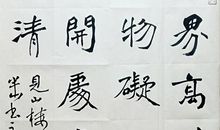 界高
物礙
開處
清
見山樓